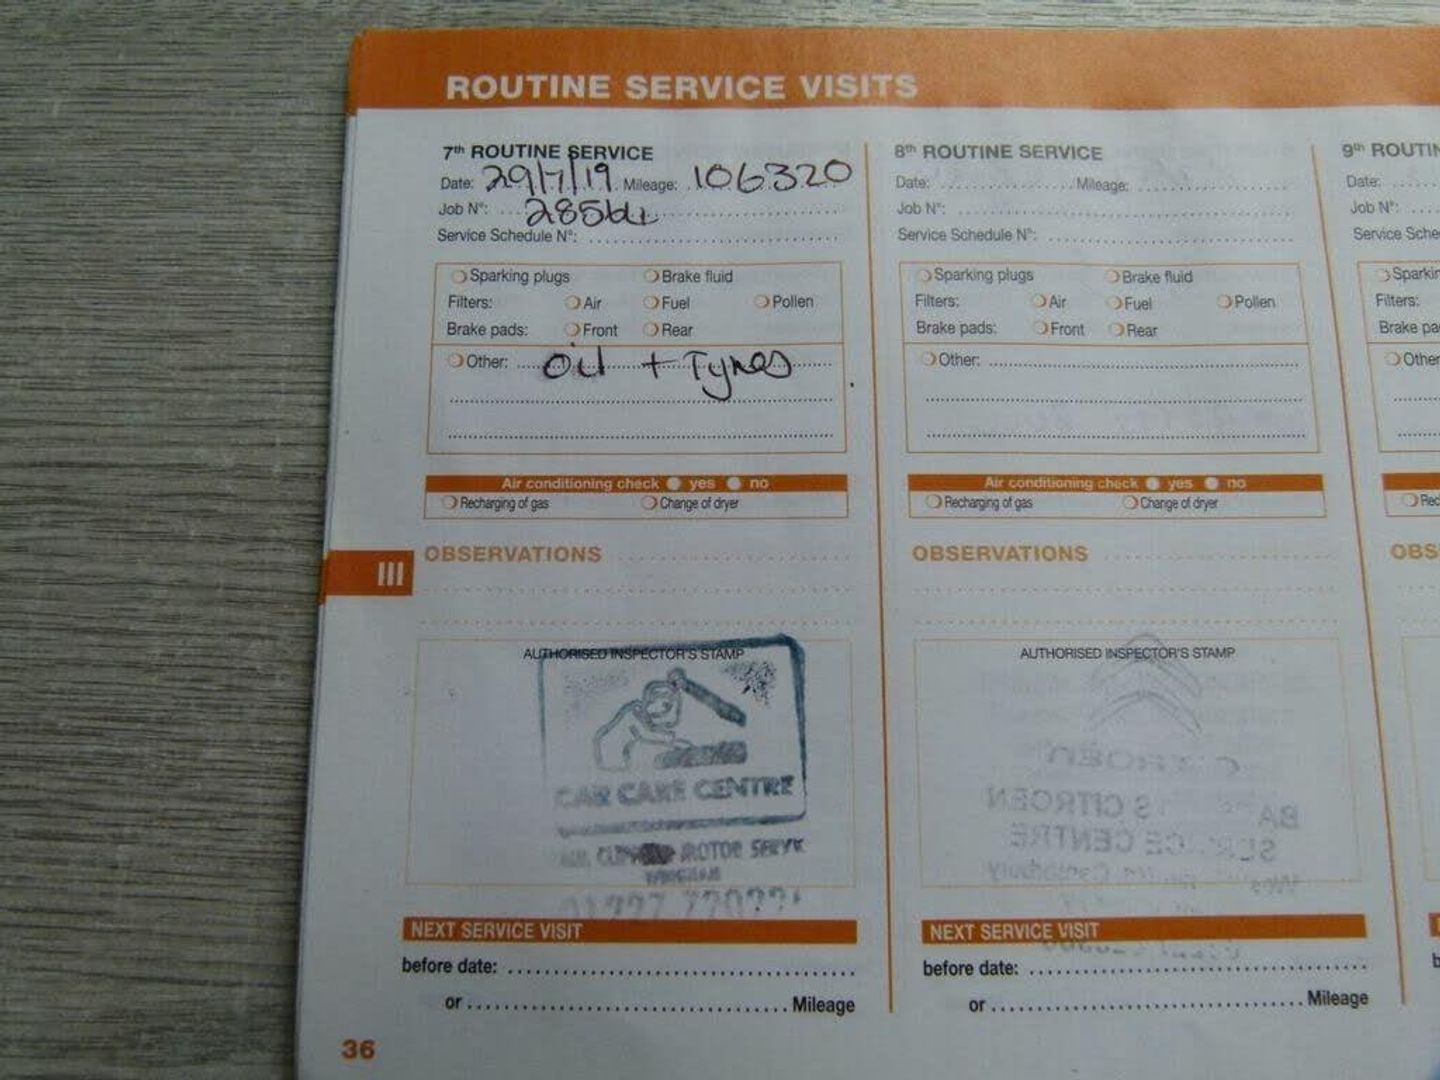 ROUTINE SERVICE VISITS
7th ROUTINE SERVICE
Date: 29/7/19 Mileage: 106320
Job N°:
Service Schedule N°:
Sparking plugs Brake fluid
Filters: Air Fuel Pollen
Brake pads: Front Rear
Other: Oil + Tyres
Air conditioning check yes no
Recharging of gas Change of dryer
OBSERVATIONS
III
AUTHORISED INSPECTOR'S STAMP
CAR CARE CENTRE
MOTOR
NEXT SERVICE VISIT
before date:
or Mileage
36
8th ROUTINE SERVICE
Date: Mileage:
Job N°:
Service Schedule N°:
Sparking plugs Brake fluid
Filters: Air Fuel Pollen
Brake pads: Front Rear
Other:
Air conditioning check yes no
Recharging of gas Change of dryer
OBSERVATIONS
AUTHORISED INSPECTOR'S STAMP
NEXT SERVICE VISIT
before date:
or Mileage
9th ROUTIN
Date:
Job N°:
Service Sche
Sparkin
Filters:
Brake pa
Other
Rec
OBS